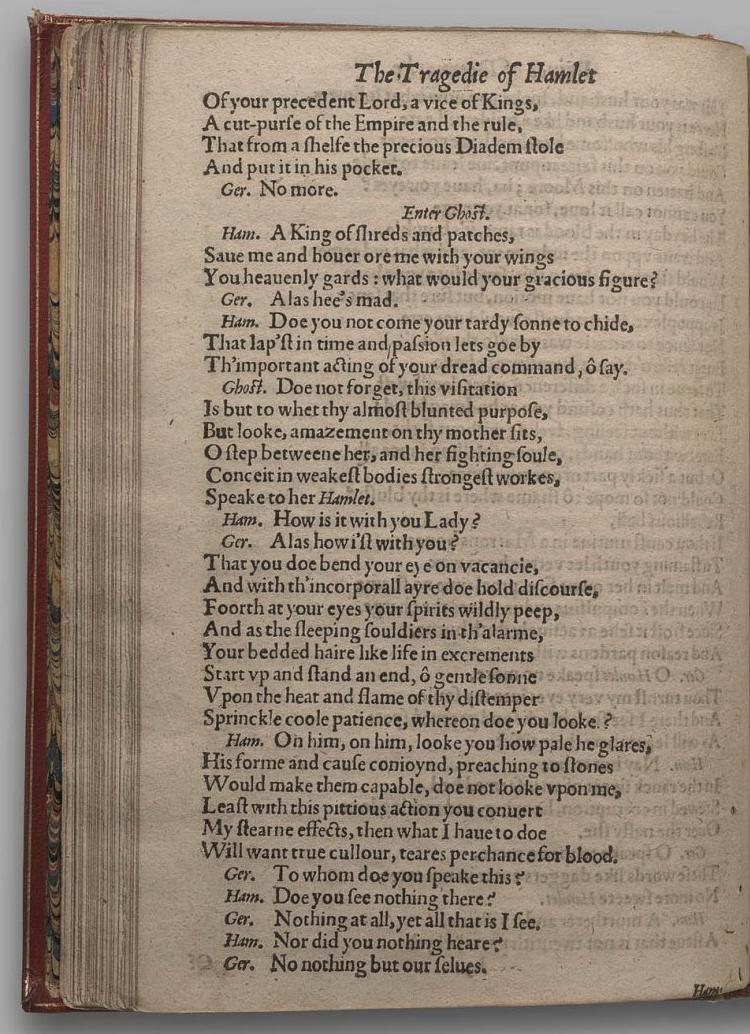 The Tragedie of Hamlet
Of your precedent Lord, a vice of Kings,
A cut-purſe of the Empire and the rule,
That from a ſhelfe the precious Diadem ſtole
And put it in his pocket.
Ger. No more.
Enter Ghoſt.
Ham. A King of ſhreds and patches,
Saue me and houer ore me with your wings
You heauenly gards : what would your gracious figure?
Ger. Alas hee's mad.
Ham. Doe you not come your tardy ſonne to chide,
That lap'ſt in time and paſsion lets goe by
Th'important acting of your dread command, ô ſay.
Ghoſt. Doe not forget, this viſitation
Is but to whet thy almoſt blunted purpoſe,
But looke, amazement on thy mother ſits,
O ſtep betweene her, and her fighting ſoule,
Conceit in weakeſt bodies ſtrongeſt workes,
Speake to her Hamlet.
Ham. How is it with you Lady?
Ger. Alas how i'ſt with you?
That you doe bend your eye on vacancie,
And with th'incorporall ayre doe hold diſcourſe,
Foorth at your eyes your ſpirits wildly peep,
And as the ſleeping ſouldiers in th'alarme,
Your bedded haire like life in excrements
Start vp and ſtand an end, ô gentle ſonne
Vpon the heat and flame of thy diſtemper
Sprinckle coole patience, whereon doe you looke.?
Ham. On him, on him, looke you how pale he glares,
His forme and cauſe conioynd, preaching to ſtones
Would make them capable, doe not looke vpon me,
Leaſt with this pittious action you conuert
My ſtearne effects, then what I haue to doe
Will want true cullour, teares perchance for blood.
Ger. To whom doe you ſpeake this?
Ham. Doe you ſee nothing there?
Ger. Nothing at all, yet all that is I ſee.
Ham. Nor did you nothing heare?
Ger. No nothing but our ſelues.
Ham.